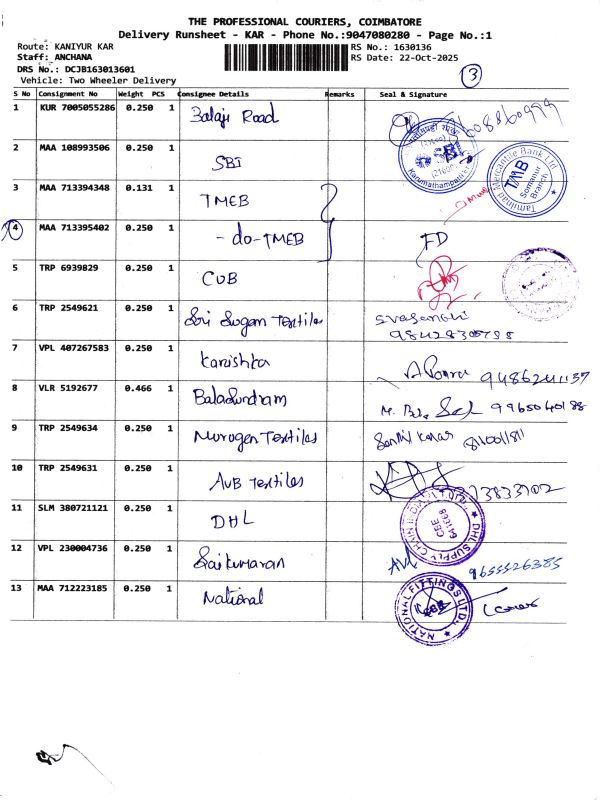 THE PROFESSIONAL COURIERS, COIMBATORE
Delivery Runsheet - KAR - Phone No.:9047080280 - Page No.:1
Route: KANIYUR KAR
RS No.: 1630136
Staff: ANCHANA
RS Date: 22-Oct-2025
DRS No.: DCJB163013601
Vehicle: Two Wheeler Delivery
3
S No Consignment No Weight PCS Consignee Details Remarks Seal & Signature
1 KUR 7005055286 0.250 1 Balaji Road
2 MAA 108993506 0.250 1 SBI SBI
Tamilnad Mercantile Bank Ltd TMB Somanur Branch
3 MAA 713394348 0.131 1 TMEB
4 MAA 713395402 0.250 1 - do - TMEB FD
5 TRP 6939829 0.250 1 CUB
6 TRP 2549621 0.250 1 Sri Sugam Textiles
7 VPL 407267583 0.250 1 Kanishka 9486241137
8 VLR 5192677 0.466 1 Balasundram 9965040188
9 TRP 2549634 0.250 1 Murugen Textiles
10 TRP 2549631 0.250 1 AVB Textiles
11 SLM 380721121 0.250 1 DHL
DHL SUPPLY CHAIN CBE 641668
12 VPL 230004736 0.250 1 Saikumaran 9655526385
13 MAA 712223185 0.250 1 National
NATIONAL FITTINGS LTD.,